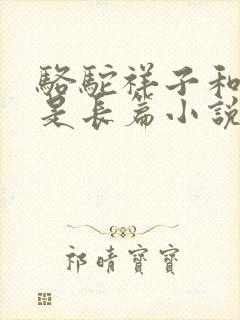 駱駝祥子和
是長篇小說
祁晴寶寶